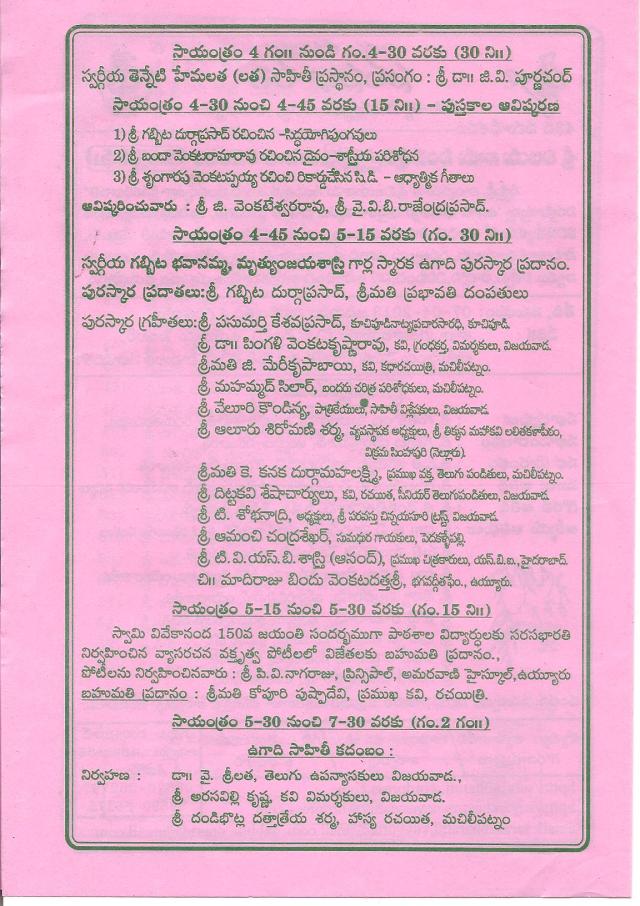 సాయంత్రం 4 గం॥ నుండి గం.4-30 వరకు (30 ని॥)
స్వర్గీయ తెన్నేటి హేమలత (లత) సాహితీ ప్రస్థానం, ప్రసంగం : శ్రీ డా॥ జి.వి. పూర్ణచంద్
సాయంత్రం 4-30 నుంచి 4-45 వరకు (15 ని॥) - పుస్తకాల ఆవిష్కరణ
1) శ్రీ గబ్బిట దుర్గాప్రసాద్ రచించిన -సిద్ధయోగిపుంగవులు
2) శ్రీ బందా వెంకటరామారావు రచించిన దైవం-శాస్త్రీయ పరిశోధన
3) శ్రీ శృంగారపు వెంకటప్పయ్య రచించి రికార్డుచేసిన సి.డి. - ఆధ్యాత్మిక గీతాలు
ఆవిష్కరించువారు : శ్రీ జి. వెంకటేశ్వరరావు, శ్రీ వై.వి.బి.రాజేంద్రప్రసాద్.
సాయంత్రం 4-45 నుంచి 5-15 వరకు (గం. 30 ని॥)
స్వర్గీయ గబ్బిట భవానమ్మ, మృత్యుంజయశాస్త్రి గార్ల స్మారక ఉగాది పురస్కార ప్రదానం.
పురస్కార ప్రదాతలు:శ్రీ గబ్బిట దుర్గాప్రసాద్, శ్రీమతి ప్రభావతి దంపతులు
పురస్కార గ్రహీతలు:శ్రీ పసుమర్తి కేశవప్రసాద్, కూచిపూడినాట్యప్రచారసారధి, కూచిపూడి.
శ్రీ డా॥ పింగళి వెంకటకృష్ణారావు, కవి, గ్రంధకర్త, విమర్శకులు, విజయవాడ.
శ్రీమతి జి. మేరీకృపాబాయి, కవి, కథారచయిత్రి, మచిలీపట్నం.
శ్రీ మహమ్మద్ సిలార్, బందరు చరిత్ర పరిశోధకులు, మచిలీపట్నం.
శ్రీ వేలూరి కౌండిన్య, పాత్రికేయులు, సాహితీ విశ్లేషకులు, విజయవాడ.
శ్రీ ఆలూరు శిరోమణి శర్మ, వ్యవస్థాపక అధ్యక్షులు, శ్రీ తిక్కన మహాకవి లలితకళాపీఠం,
విక్రమ సింహపురి (నెల్లూరు).
శ్రీమతి కె. కనక దుర్గామహలక్ష్మి, ప్రముఖ వక్త, తెలుగు పండితులు, మచిలీపట్నం.
శ్రీ దిట్టకవి శేషాచార్యులు, కవి, రచయిత, సీనియర్ తెలుగుపండితులు, విజయవాడ.
శ్రీ టి. శోభనాద్రి, అధ్యక్షులు, శ్రీ పరవస్తు చిన్నయసూరి ట్రస్ట్, విజయవాడ.
శ్రీ ఆమంచి చంద్రశేఖర్, సుమధుర గాయకులు, పెదకళ్ళేపల్లి.
శ్రీ టి.వి.యస్.బి.శాస్త్రి (ఆనంద్), ప్రముఖ చిత్రకారులు, యస్.బి.ఐ.,హైదరాబాద్.
చి॥ మాదిరాజు బిందు వెంకటదత్తశ్రీ, భగవద్గీతఫేం., ఉయ్యూరు.
సాయంత్రం 5-15 నుంచి 5-30 వరకు (గం.15 ని॥)
స్వామి వివేకానంద 150వ జయంతి సందర్భముగా పాఠశాల విద్యార్థులకు సరసభారతి
నిర్వహించిన వ్యాసరచన వక్తృత్వ పోటీలలో విజేతలకు బహుమతి ప్రదానం.,
పోటీలను నిర్వహించినవారు : శ్రీ పి.వి.నాగరాజు, ప్రిన్సిపాల్, అమరవాణి హైస్కూల్,ఉయ్యూరు
బహుమతి ప్రదానం : శ్రీమతి కోపూరి పుష్పాదేవి, ప్రముఖ కవి, రచయిత్రి.
సాయంత్రం 5-30 నుంచి 7-30 వరకు (గం.2 గం॥)
ఉగాది సాహితీ కదంబం :
నిర్వహణ : డా॥ వై. శ్రీలత, తెలుగు ఉపన్యాసకులు విజయవాడ.,
శ్రీ అరసవిల్లి కృష్ణ, కవి విమర్శకులు, విజయవాడ.
శ్రీ దండిభొట్ల దత్తాత్రేయ శర్మ, హాస్య రచయిత, మచిలీపట్నం